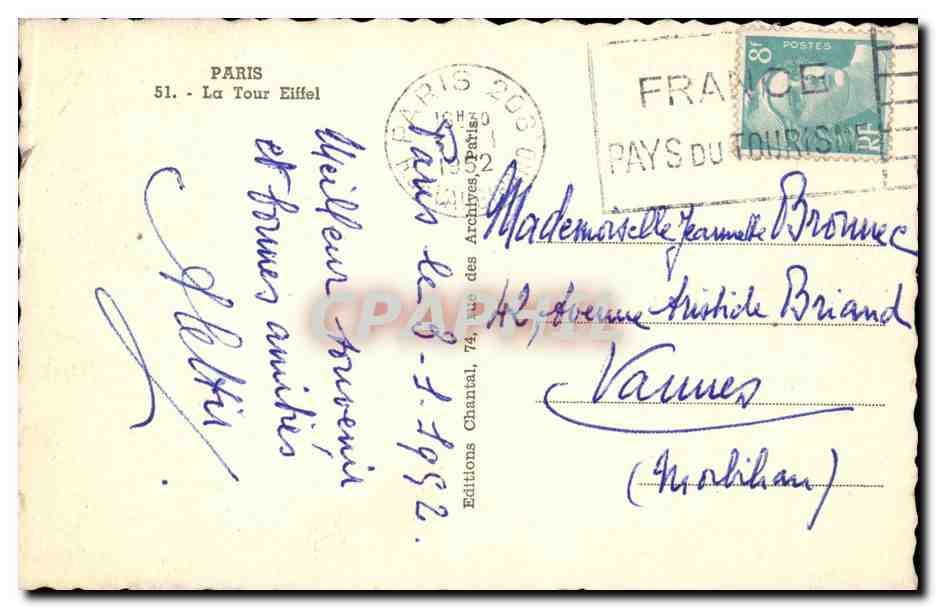 PARIS
51. - La Tour Eiffel
Paris le 8-1-1952.
Meilleur souvenir
et bonnes amitiés
Editions Chantal, 74, rue des Archives, Paris.
PARIS
1952
FRANCE
PAYS DU TOURISME
8f
POSTES
RF
Mademoiselle Jeannette Bronnec
42, Avenue Aristide Briand
Vannes
(Morbihan)
CPARAMA